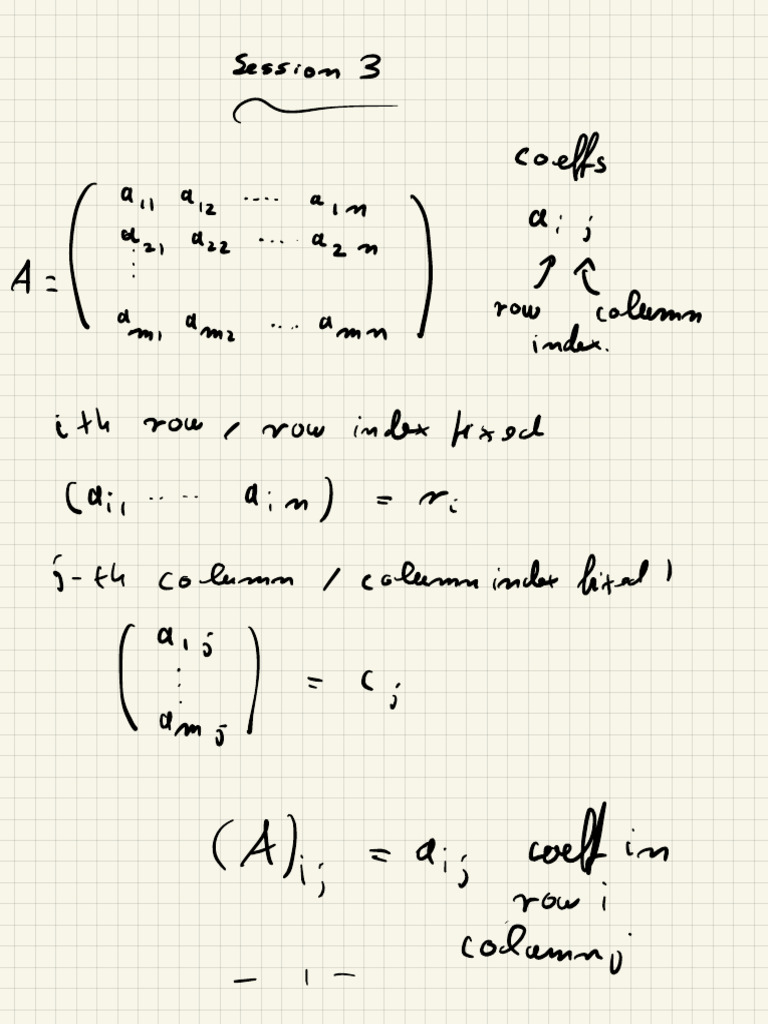 Session 3
coeffs
a_{ij}
row column
index.
A = \begin{pmatrix} a_{11} & a_{12} & \cdots & a_{1n} \\ a_{21} & a_{22} & \cdots & a_{2n} \\ \vdots \\ a_{m1} & a_{m2} & \cdots & a_{mn} \end{pmatrix}
ith row / row index fixed
(a_{i1} \cdots a_{in}) = r_i
j-th column / column index fixed )
\begin{pmatrix} a_{1j} \\ \vdots \\ a_{mj} \end{pmatrix} = c_j
(A)_{ij} = a_{ij} coeff in
row i
column j
— ı —